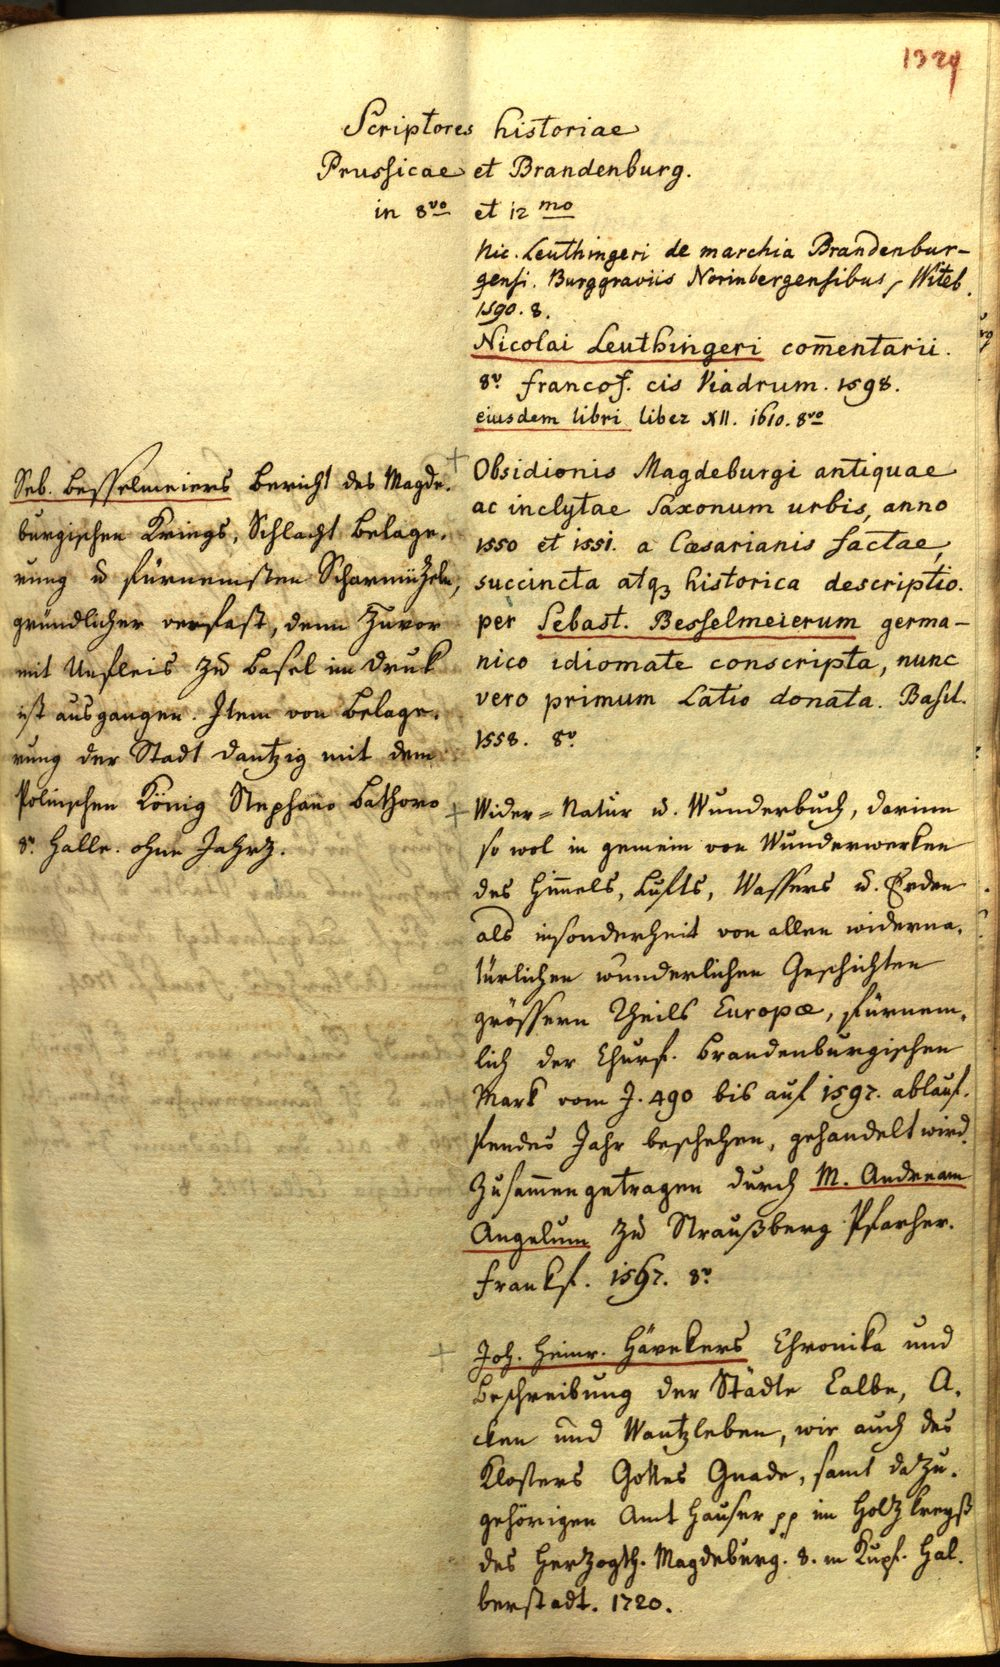 1329
Scriptores historiae
Prussicae et Brandenburg.
in 8vo et 12mo
Nic. Leuthingeri de marchia Brandenbur-
gensi. Burggraviis Norinbergensibus, Witeb.
1590. 8.
Nicolai Leuthingeri com̄entarii.
8v. francof. cis Viadrum. 1598.
eiusdem libri liber XII. 1610. 8vo
+ Obsidionis Magdeburgi antiquae
ac inclytae Saxonum urbis, anno
1550 et 1551. a Cæsarianis factae,
succincta atqȝ historica descriptio.
per Sebast. Besselmeierum germa-
nico idiomate conscripta, nunc
vero primum Latio donata. Basil.
1558. 8o.
Seb. Besselmeiers Bericht des Magde-
burgischen Kriegs, Schlacht Belage-
rung u fürnemsten Scharmützeln,
gründlicher verfast, denn Zuvor
mit Unfleis zu Basel im Druk
ist ausgangen. Item von Belage-
rung der Stadt Dantzig mit dem
Polnischen König Stephano Bathoro
8o. Halle. ohne Jahrz.
+ Wider=Natur u. Wunderbuch, darinn
so wol in gemein von Wunderwerken
des Him̄els, Lufts, Wassers u. Erden
als insonderheit von allen widerna-
türlichen wunderlichen Geschichten
grössern Theils Europæ, fürnem-
lich der Churf. Brandenburgischen
Mark vom J. 490 bis auf 1597. ablauf-
fendes Jahr beschehen, gehandelt wird.
Zusam̄engetragen durch M. Andream
Angelum zu Straußberg Pfarher.
Frankf. 1597. 8o
+ Joh. Heinr. Hävekers Chronika und
Beschreibung der Städte Calbe, A-
cken und Wantzleben, wie auch des
Klosters Gottes Gnade, samt dazu-
gehörigen Amt Häuser pp im Holtzkreyß
des Herzogth. Magdeburg. 8. m Kupf. Hal-
berstadt. 1720.